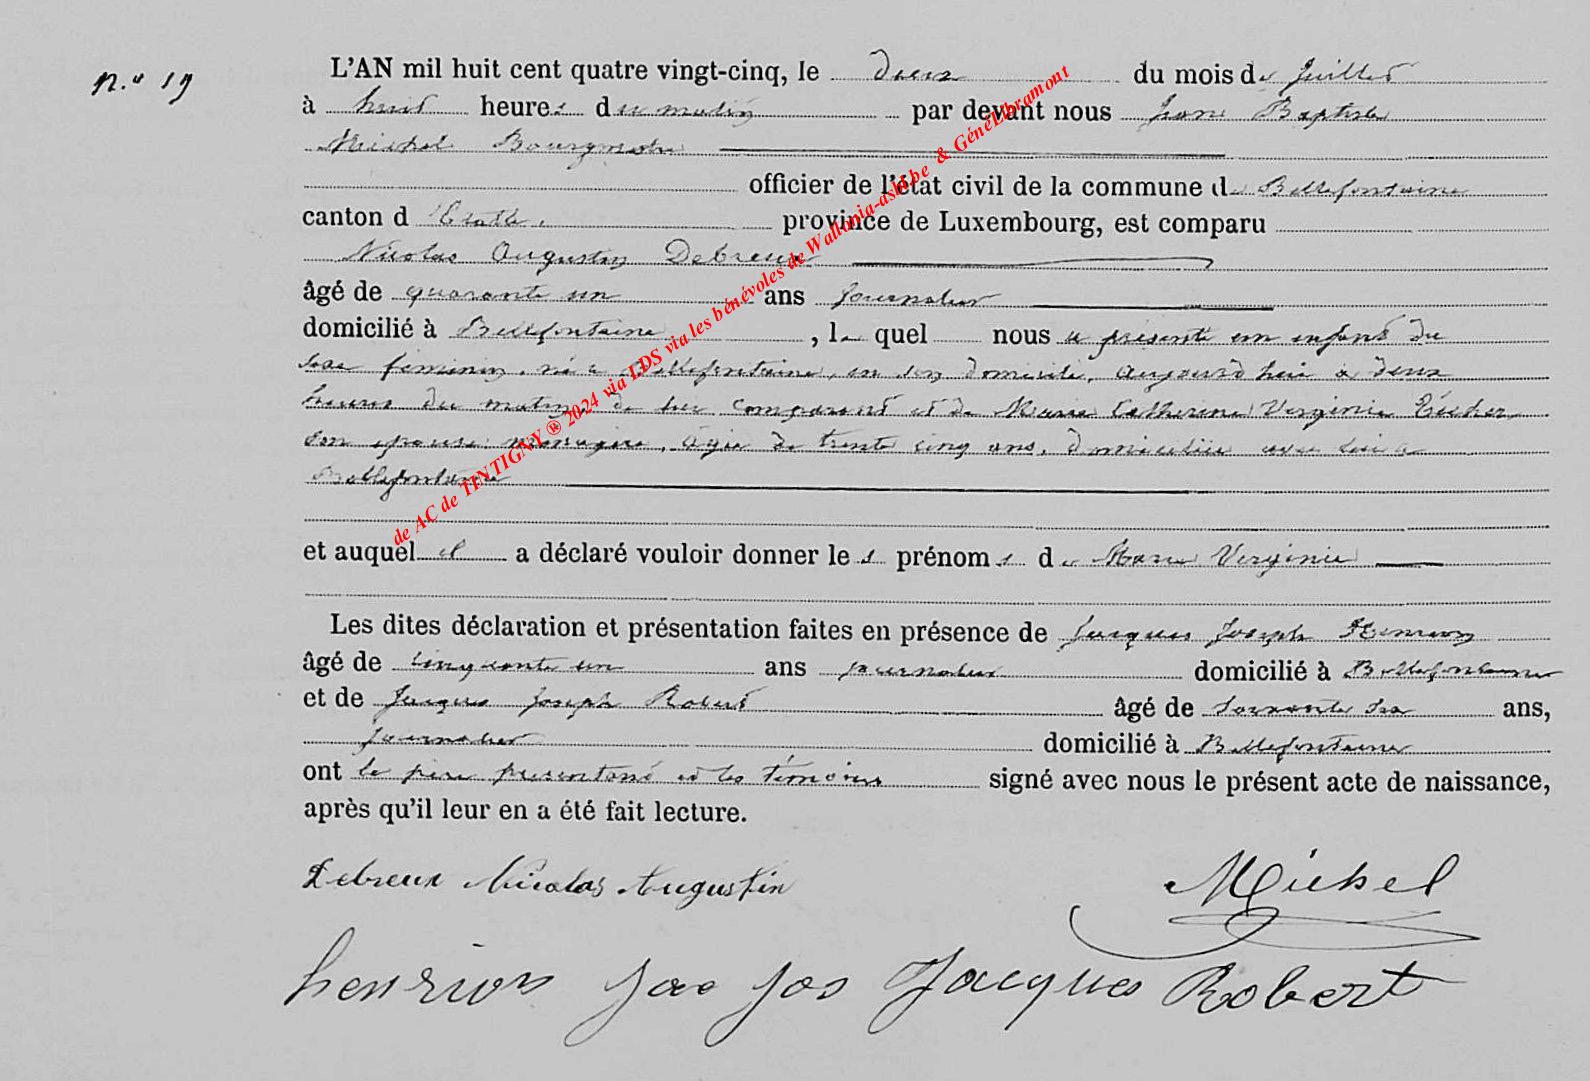 n.º 19
L'AN mil huit cent quatre vingt-cinq, le deux du mois de Juillet
à huit heures du matin par devant nous Jean Baptiste
Michel Bourgmestre
officier de l'état civil de la commune de Bellefontaine
canton d'Etalle, province de Luxembourg, est comparu
Nicolas Augustin Debreux
âgé de quarante un ans journalier
domicilié à Bellefontaine, le quel nous a présenté un enfant du
sexe féminin, né à Bellefontaine, en son domicile, aujourd'hui à deux
heures du matin, de lui comparant et de Marie Catherine Virginie
son épouse ménagère, âgée de trente cinq ans, domiciliée avec lui à
Bellefontaine
et auquel il a déclaré vouloir donner les prénoms de Marie Virginie
Les dites déclaration et présentation faites en présence de Jacques Joseph Henrion
âgé de cinquante un ans journalier domicilié à Bellefontaine
et de Jacques Joseph Robert âgé de soixante ans,
journalier domicilié à Bellefontaine
ont le père présentant et les témoins signé avec nous le présent acte de naissance,
après qu'il leur en a été fait lecture.
Debreux Nicolas Augustin
Michel
henrion Jac Jos Jacques Robert
de AC de TINTIGNY ® 2024 via LDS via les bénévoles de Wallonia-asbl.be & GénéLibramont